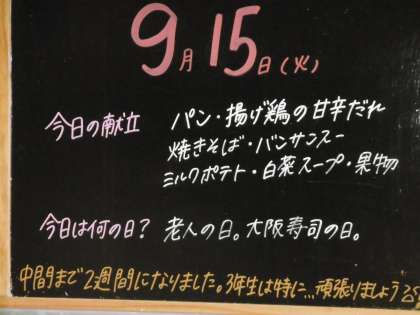 9月15日(火)
今日の献立 パン・揚げ鶏の甘辛だれ
焼きそば・バンサンスー
ミルクポテト・白菜スープ・果物
今日は何の日? 老人の日。大阪寿司の日。
中間まで2週間になりました。3年生は特に…頑張りましょう